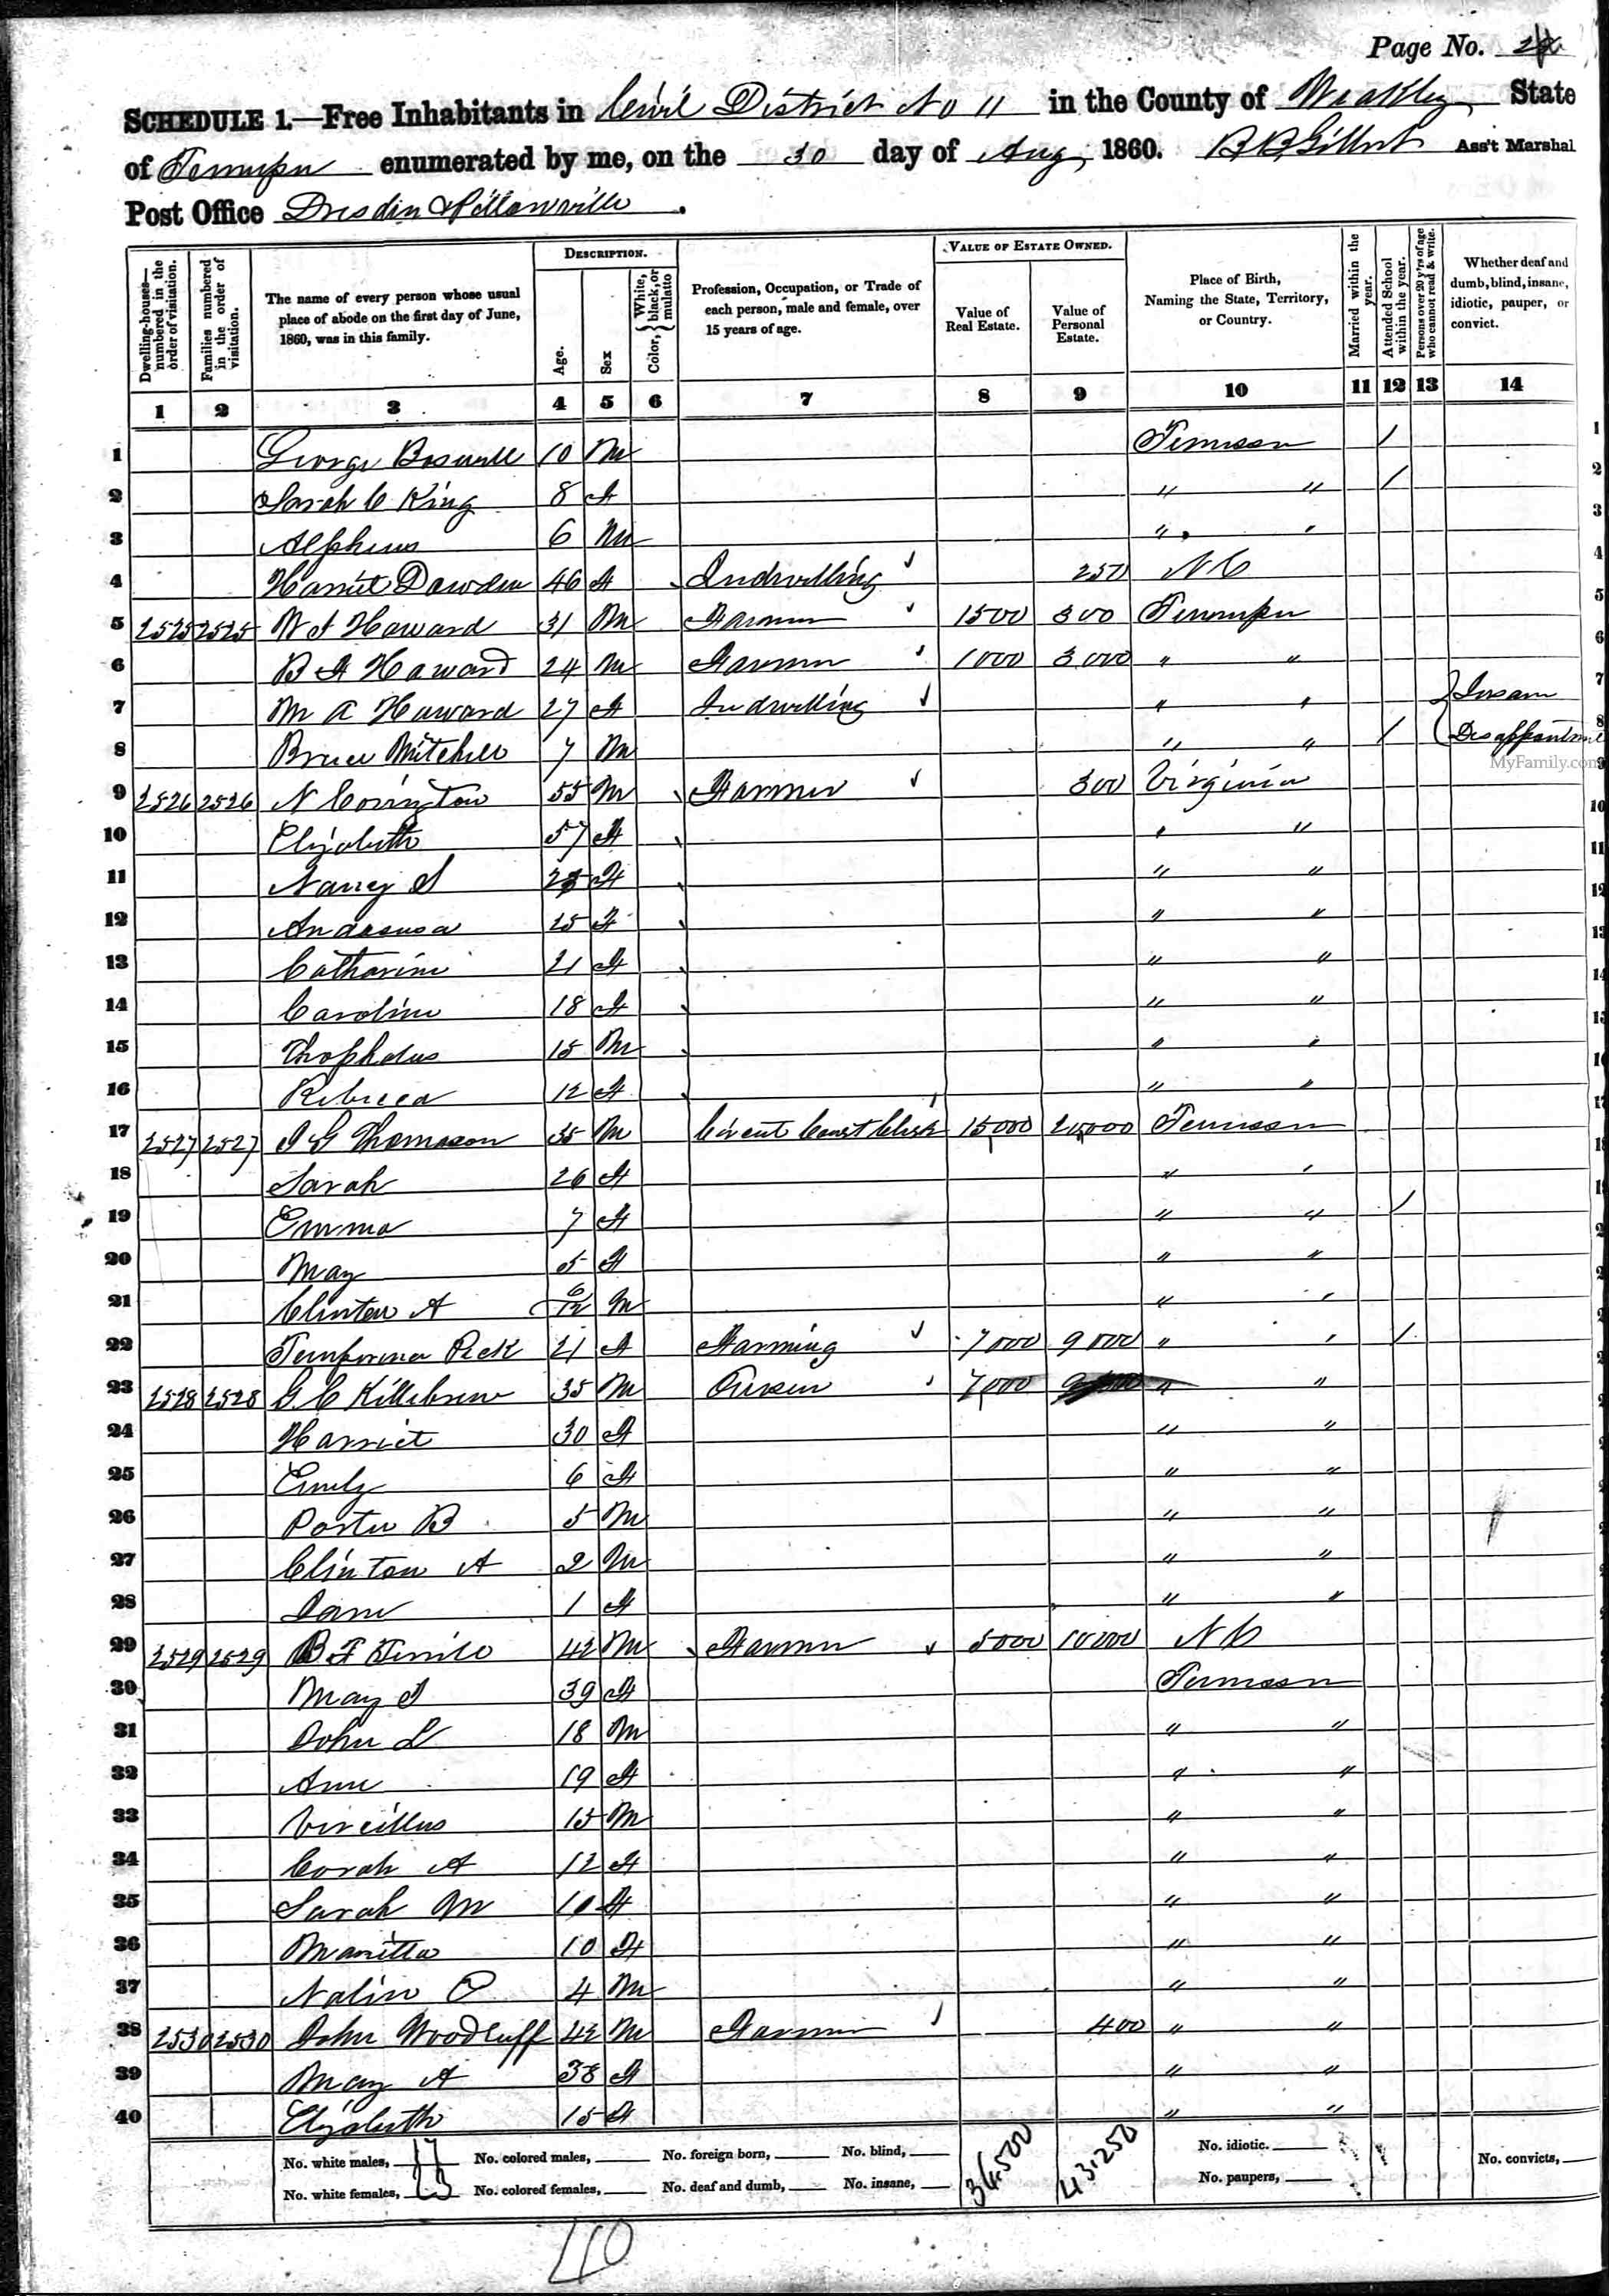 Page No. 24
SCHEDULE 1.—Free Inhabitants in Civil District No 11 in the County of Weakley State
of Tennessee enumerated by me, on the 30 day of Aug, 1860. B B Gilbert Ass't Marshal
Post Office Dresden & Pillowville.
Dwelling-houses—numbered in the order of visitation. Families numbered in the order of visitation. The name of every person whose usual place of abode on the first day of June, 1860, was in this family. DESCRIPTION. Age. Sex Color, { White, black, or mulatto Profession, Occupation, or Trade of each person, male and female, over 15 years of age. VALUE OF ESTATE OWNED. Value of Real Estate. Value of Personal Estate. Place of Birth, Naming the State, Territory, or Country. Married within the year. Attended School within the year. Persons over 20 y'rs of age who cannot read & write. Whether deaf and dumb, blind, insane, idiotic, pauper, or convict.
1 2 3 4 5 6 7 8 9 10 11 12 13 14
1 George Boswell 10 M Tennessee / 1
2 Sarah C King 8 f " " / 2
3 Alpheus 6 M " " 3
4 Harriet Dowden 46 f Indwelling 250 N C 4
5 2525 2525 W F Howard 31 M Farmer 1500 300 Tennessee 5
6 B F Howard 24 M Farmer 1000 3,000 " " 6
7 M A Howard 27 f Indwelling " " Insane 7
8 Bruce Mitchell 7 M " " / Disappointme 8
MyFamily.com
9 2526 2526 N Covington 55 M Farmer 300 Virginia 9
10 Elizabeth 57 f " " 10
11 Nancy S f " " 11
12 25 f " " 12
13 Catharine 21 f " " 13
14 Caroline 18 f " " 14
15 Thopholus 15 M " "
16 Rebecca 12 f " "
17 2527 2527 J G Thomason 35 M Circut Court Clerk 15,000 20,000 Tennessee
18 Sarah 26 f " "
19 Emma 7 f " " /
20 May 5 f " "
21 Clinton A 6/12 M " "
22 Peck 21 f Farming 7000 9000 " " /
23 2528 2528 G C Killebrew 35 M 7,000 " "
24 Harriet 30 f " "
25 Emily 6 f " "
26 Porter B 5 M " "
27 Clinton A 2 M " "
28 1 f " "
29 2529 2529 B F 42 M Farmer 5000 10000 N C
30 May J 39 f Tennessee
31 John L 18 M " "
32 Ann 19 f " "
33 Vircillus 15 M " "
34 Corah A 12 f " "
35 Sarah M 10 f " "
36 Manilla 10 f " "
37 4 M " "
38 2530 2530 John Woodruff 42 M Farmer 400 " "
39 May A 38 f " "
40 Elizabeth 15 f " "
No. white males, 17 No. colored males, No. foreign born, No. blind, 34,500 43,250 No. idiotic. No. convicts,
No. white females, 23 No. colored females, No. deaf and dumb, No. insane, No. paupers,
40